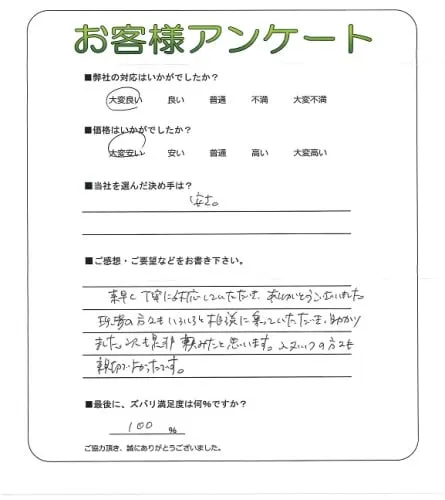 お客様アンケート
■弊社の対応はいかがでしたか?
大変良い 良い 普通 不満 大変不満
■価格はいかがでしたか?
大変安い 安い 普通 高い 大変高い
■当社を選んだ決め手は?
安さ。
■ご感想・ご要望などをお書き下さい。
素早く丁寧に対応していただき、ありがとうございました。
現場の方々もいろいろと相談に乗っていただき、助かり
ました。次も是非頼みたいと思います。スタッフの方も
親切でよかったです。
■最後に、ズバリ満足度は何%ですか?
100 %
ご協力頂き、誠にありがとうございました。